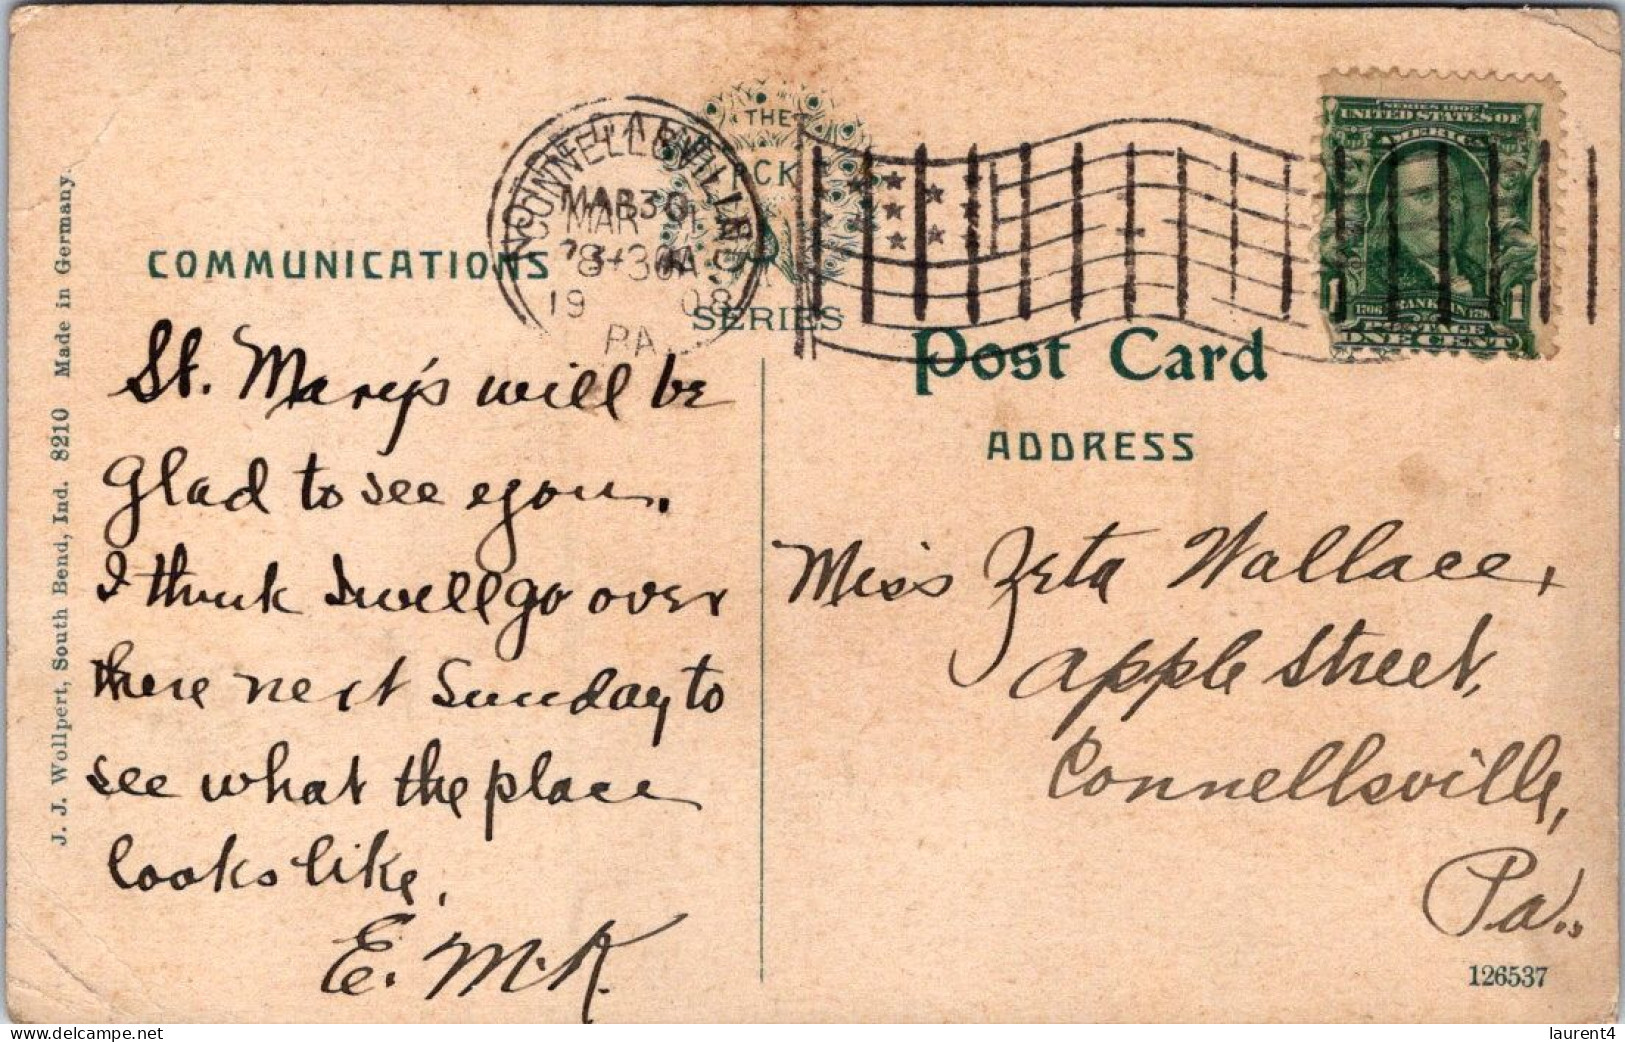 THE
P C K
SERIES
CONNELLSVILLE
MAR 30
MAR
8-30A
19 08
PA.
COMMUNICATIONS
Post Card
ADDRESS
SERIES 1902
UNITED STATES OF
AMERICA
1706 FRANKLIN 1790
POSTAGE
1 ONE CENT 1
J. J. Wollpert, South Bend, Ind. 8210 Made in Germany.
St. Mary's will be
glad to see you.
I think I will go over
there next Sunday to
see what the place
looks like.
E. M. K.
Miss Zeta Wallace,
Apple Street,
Connellsville,
Pa.
126537
delcampe.net
laurent4